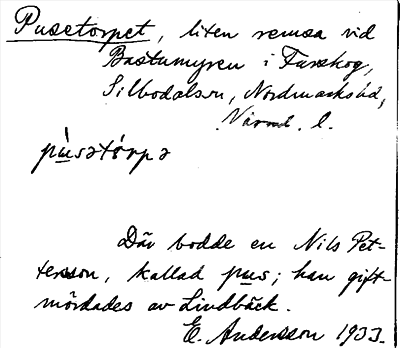 Pusetorpet, liten remsa vid
Bastumyren i Furskog,
Silbodalssn, Nordmarkshd,
Värml. l.
pùsatårpə
Där bodde en Nils Pet-
tersson, kallad pus; han gift-
mördades av Lindbäck.
E. Andersson 1933.